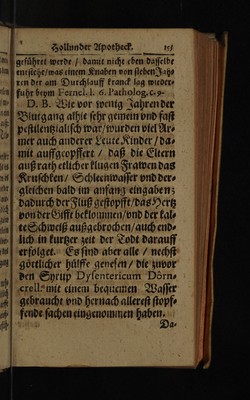 Hollunder Apotheck. 151
geführet werde / damit nicht eben dasselbe
entstehe/was einem Knaben von sieben Jah-
ren der am Durchlauff kranck lag wieder-
fuhr beym Fernel. l. 6. Patholog. c. 9.
D. B. Wie vor wenig Jahren der
Blutgang alhie sehr gemein und fast
pestilentzialisch war/wurden viel Ar-
mer auch anderer Leute Kinder / da-
mit auffgeopffert / daß die Eltern
auß rath etlicher klugen Frawen das
Kruschken / Schleenwasser und der-
gleichen bald im anfang eingaben:
dadurch der Fluß gestopfft/das Hertz
von der Gifft beklommen/und der kal-
te Schweiß außgebrochen/ auch end-
lich in kurtzer zeit der Todt darauff
erfolget. Es sind aber alle / nechst
göttlicher hülffe genesen / die zuvor
den Syrup Dysentericum Dorn-
crell. mit einem bequemen Wasser
gebraucht und hernach allererst stopf-
fende sachen eingenommen haben.
Da-